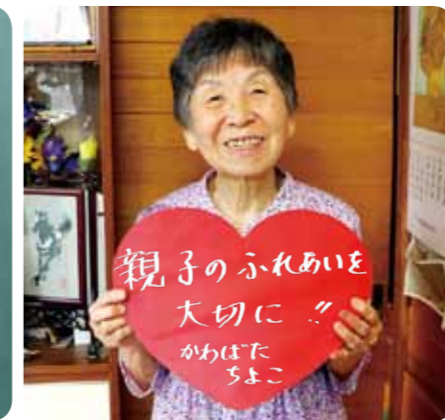 親子のふれあいを
大切に!!
かわばた
ちよこ